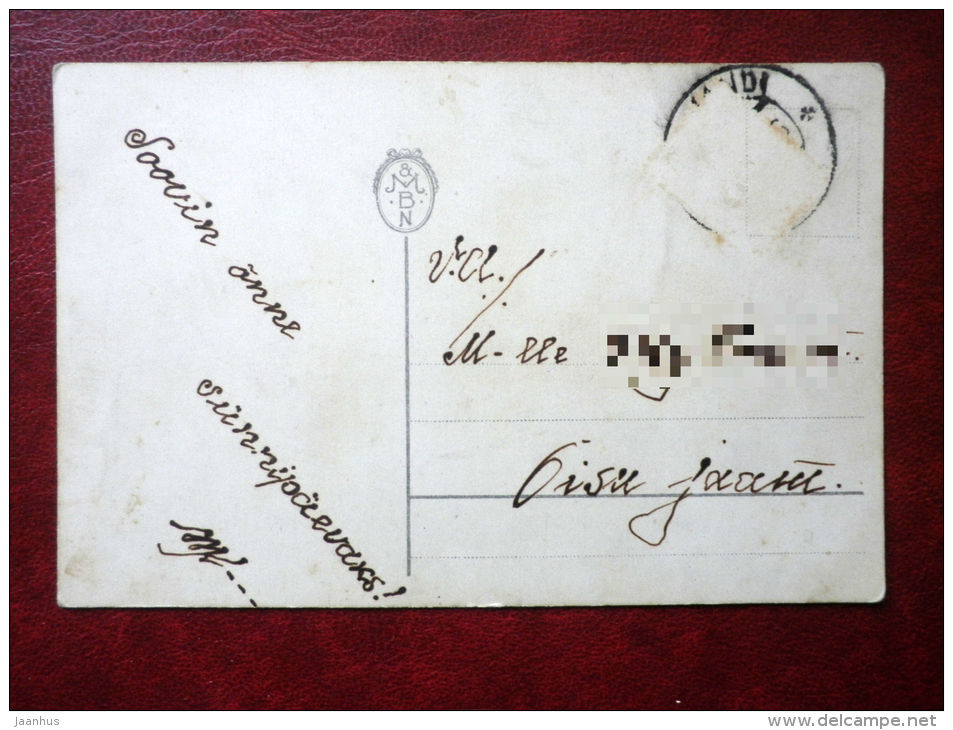 Soovin
õnne
sünnipäevaks!
&
M
B
N
M-lle
Õisu jaam.
NDI
*
jaanhus
www.delcampe.net